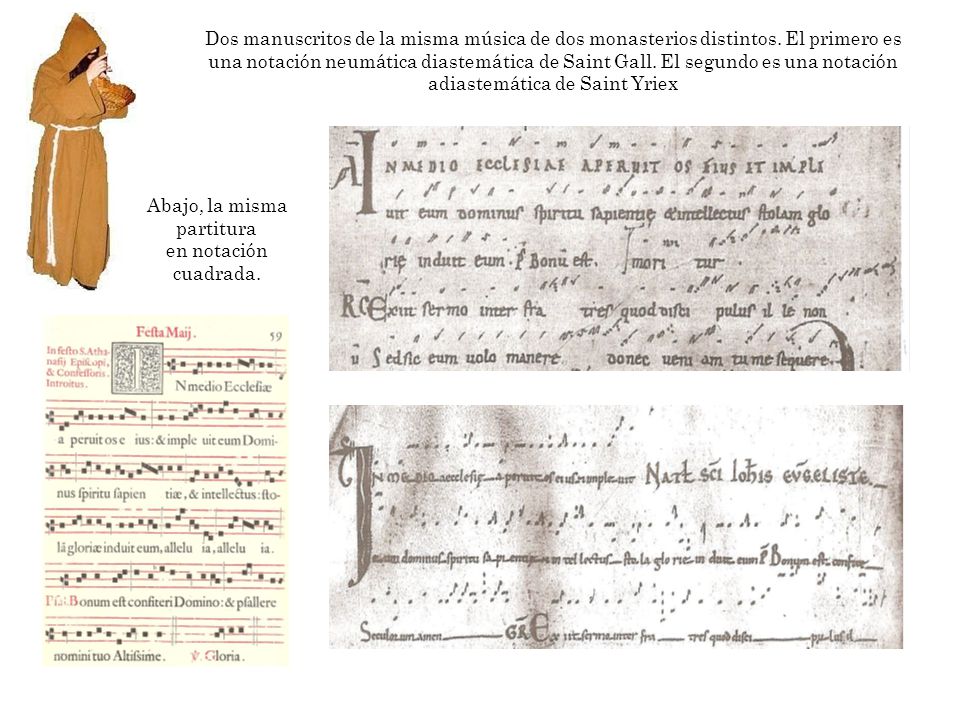 Dos manuscritos de la misma música de dos monasterios distintos. El primero es
una notación neumática diastemática de Saint Gall. El segundo es una notación
adiastemática de Saint Yriex
Abajo, la misma
partitura
en notación
cuadrada.
IN MEDIO ECCLESIAE APERUIT OS EIUS ET IMPLE
uit eum dominus spiritu sapientię & intellectus stolam glo
rię induit eum. Ps Bonū est.
RG Exiit sermo inter fra tres quod disci pulus il le non
Sed sic eum uolo manere donec ueni am tu me sequere
Festa Maij. 59
In festo S. Atha-
nasij Episcopi,
& Confessoris.
Introitus.
IN medio Ecclesiæ
a peruit os e ius: & imple uit eum Domi-
nus spiritu sapien tiæ, & intellectus: sto-
lā gloriæ induit eum, allelu ia, allelu ia.
Psal. Bonum est confiteri Domino: & psallere
nomini tuo Altissime. ℣. Gloria.
IN MEDIO aecclesię aperuit os eius & impleuit NAT SCI IOHIS EVGELISTE
eum dominus spiritu sapientię & intellectus stola glorię induit eum Ps Bonum est
Seculorum amen GR Exiit sermo inter fra tres quod disci pulus il